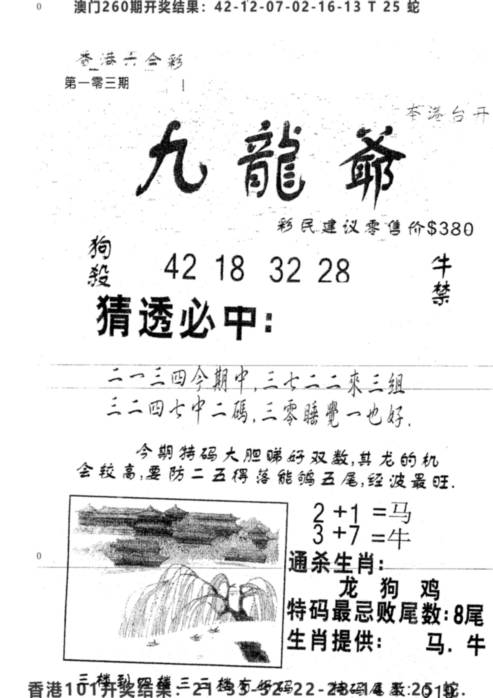 澳门260期开奖结果：42-12-07-02-16-13 T 25 蛇
香港六合彩
第一零三期
本港台开
九龍爺
彩民建议零售价$380
狗殺
42 18 32 28
牛禁
猜透必中：
二一三四今期中,三七二二來三组
三二四七中二碼,三零睡覺一也好.
今期特码大胆睇好双数,其龙的机
会较高,要防二五得落能够五尾,经波最旺.
2+1=马
3+7=牛
通杀生肖：
龙 狗 鸡
特码最忌败尾数：8尾
生肖提供： 马. 牛
香港101开奖结果：21-33-32-22-2